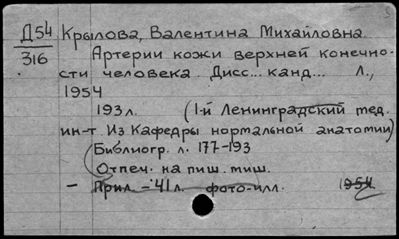 Д54
316
Крылова, Валентина Михайловна.
Артерии кожи верхней конечно-
сти человека. Дисс... канд... Л.,
1954
193л. (1-й Ленинградский мед.
ин-т. Из Кафедры нормальной анатомии)
Библиогр. л. 177-193
Отпеч. на пиш. маш.
- Прил. - 41 л. фото-илл. 1954.